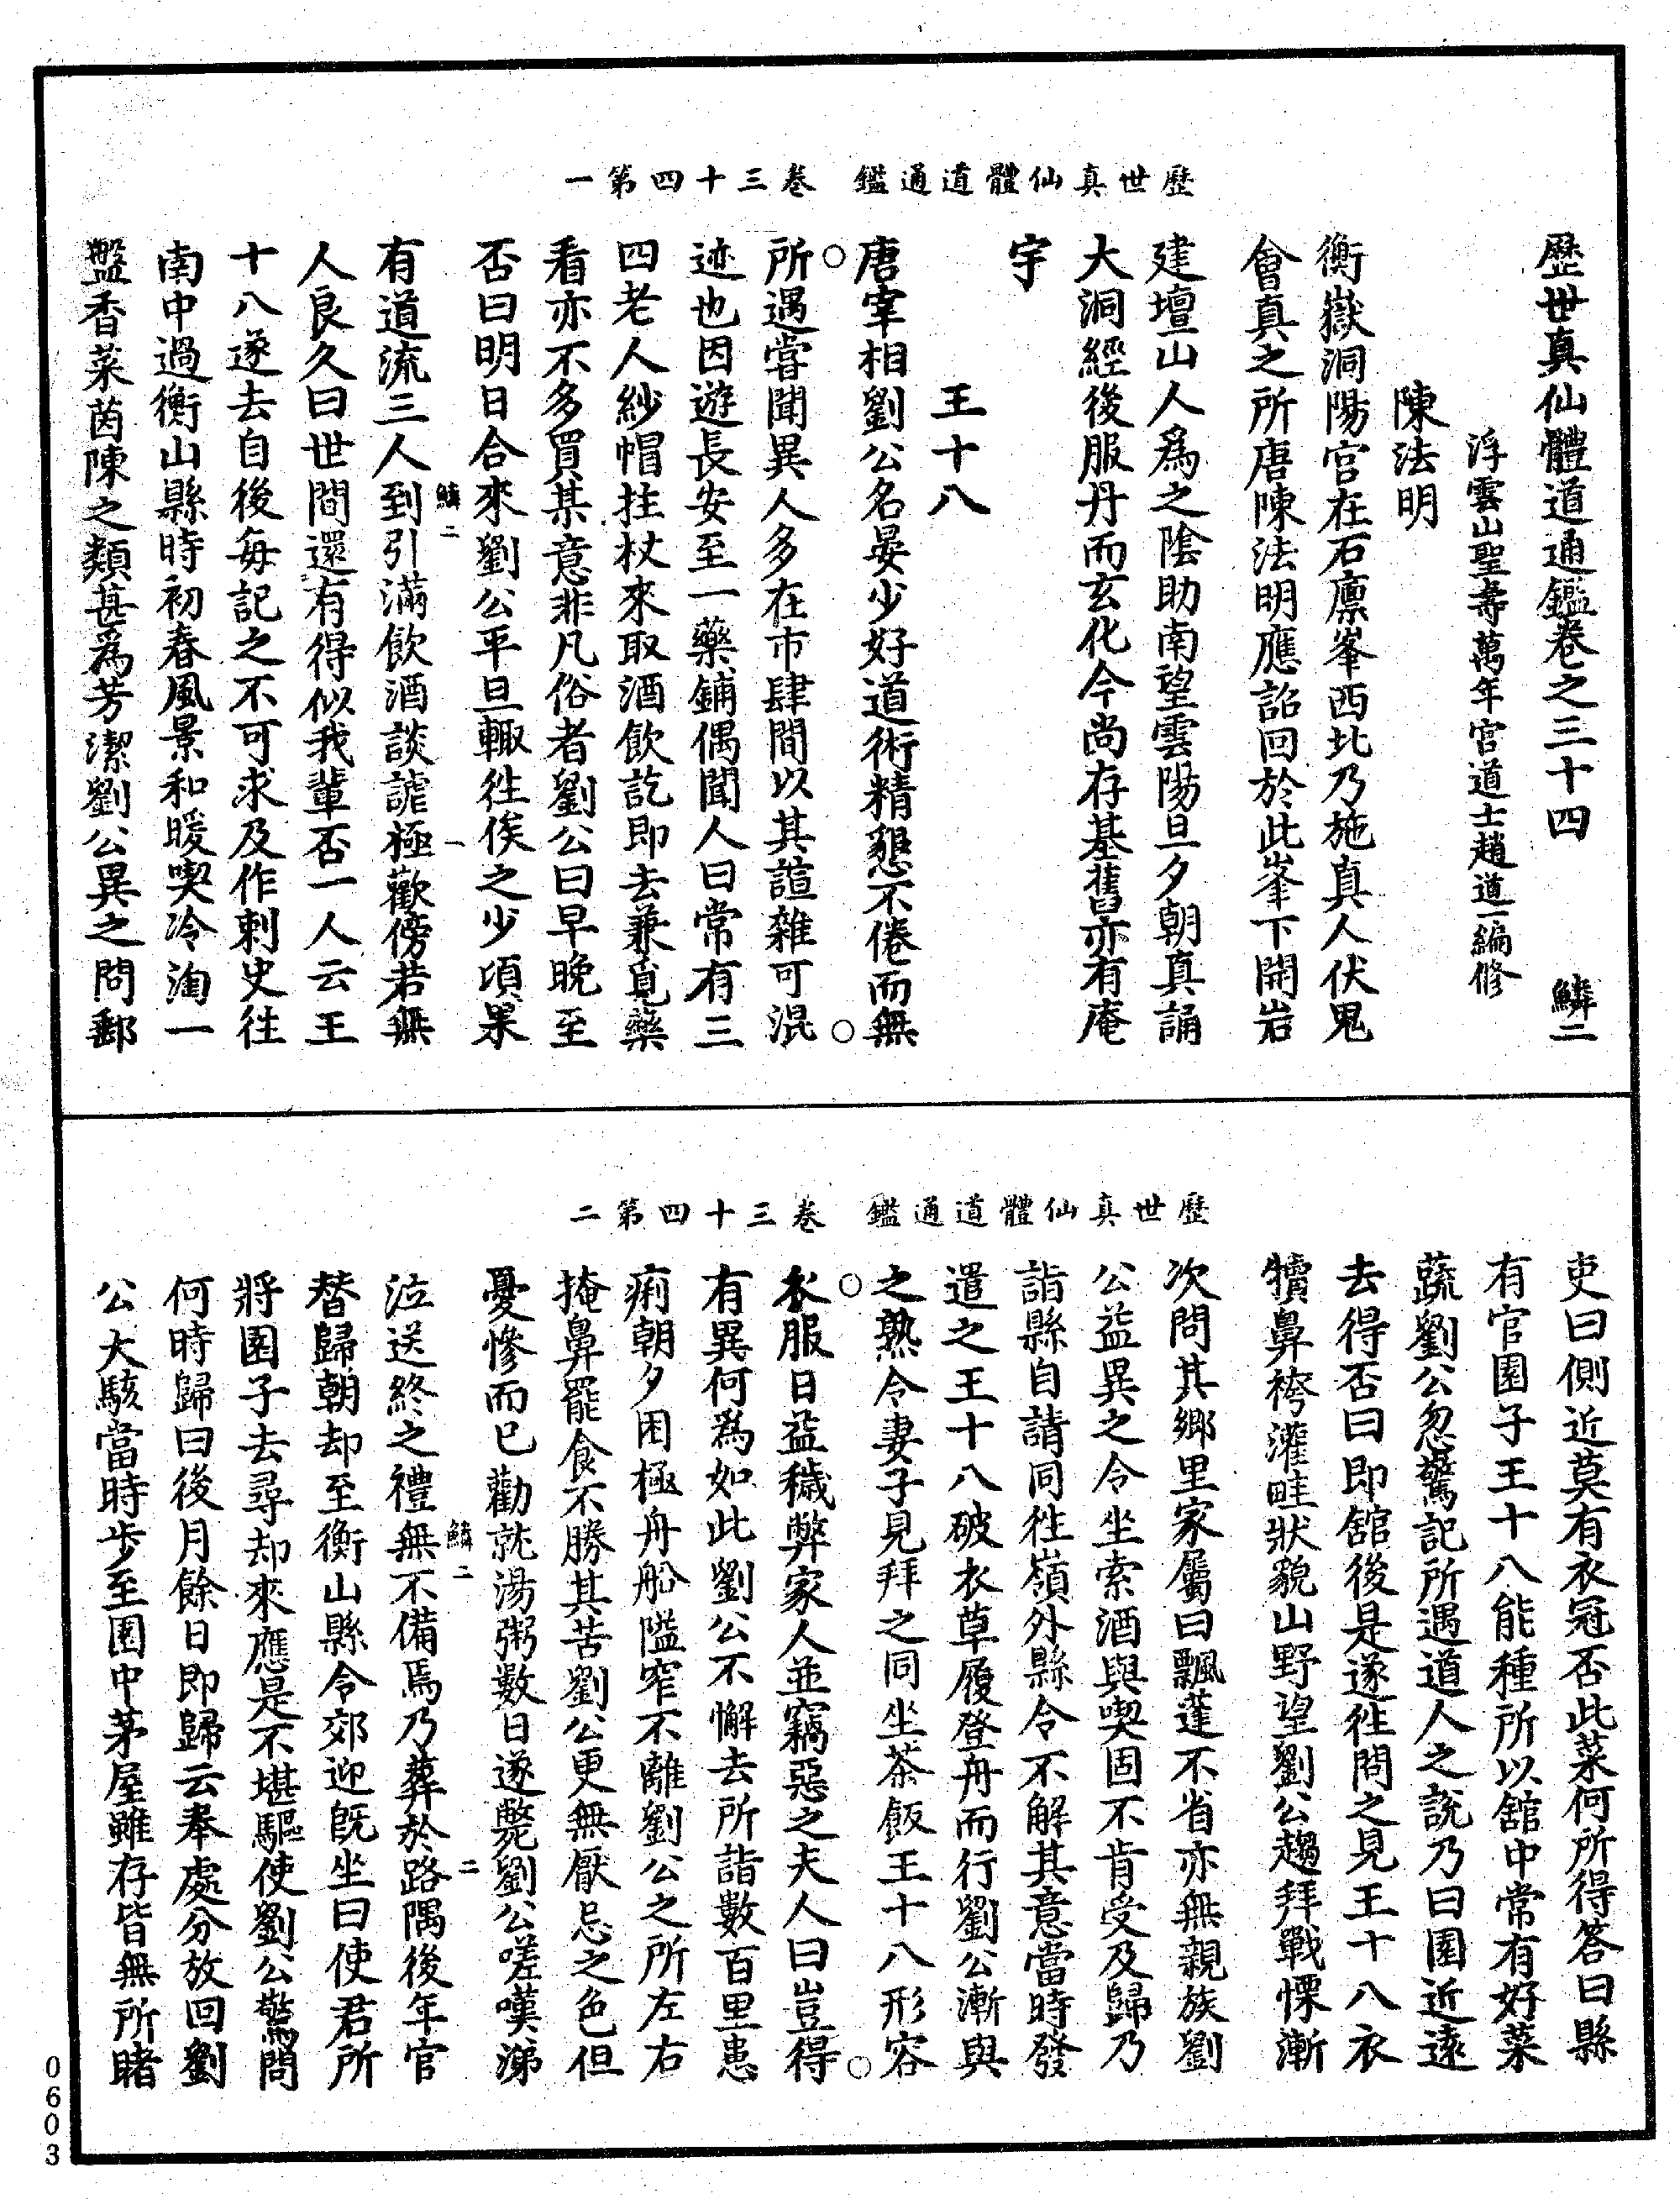 歷世真仙體道通鑑 卷三十四第一
歷世真仙體道通鑑卷之三十四 鱗二
浮雲山聖壽萬年宮道士趙道一編修
陳法明
衡嶽洞陽宮在石廩峯西北乃施真人伏鬼
會真之所唐陳法明應詔回於此峯下開岩
建壇山人為之陰助南望雲陽旦夕朝真誦
大洞經後服丹而玄化今尚存基舊亦有庵
宇
王十八
唐宰相劉公名晏少好道術精懇不倦而無
所遇嘗聞異人多在市肆間以其諠雜可混
迹也因遊長安至一藥鋪偶聞人曰常有三
四老人紗帽拄杖來取酒飲訖即去兼覓藥
看亦不多買某意非凡俗者劉公曰早晚至
否曰明日合來劉公平旦輒往俟之少頃果
鱗二 一
有道流三人到引滿飲酒談謔極歡傍若無
人良久曰世間還有得似我輩否一人云王
十八遂去自後每記之不可求及作刺史往
南中過衡山縣時初春風景和暖喫冷淘一
盤香菜茵陳之類甚為芳潔劉公異之問郵
歷世真仙體道通鑑 卷三十四第二
吏曰側近莫有衣冠否此菜何所得答曰縣
有官園子王十八能種所以舘中常有好菜
蔬劉公忽驚記所遇道人之說乃曰園近遠
去得否曰即舘後是遂往問之見王十八衣
犢鼻袴灌畦狀貌山野望劉公趨拜戰慄漸
次問其鄉里家屬曰飄蓬不省亦無親族劉
公益異之令坐索酒與喫固不肯受及歸乃
詣縣自請同往嶺外縣令不解其意當時發
遣之王十八破衣草履登舟而行劉公漸與
之熟令妻子見拜之同坐茶飯王十八形容
衣服日益穢弊家人並竊惡之夫人曰豈得
有異何為如此劉公不懈去所詣數百里患
痢朝夕困極舟船隘窄不離劉公之所左右
掩鼻罷食不勝其苦劉公更無厭忌之色但
憂慘而已勸就湯粥數日遂斃劉公嗟嘆涕
鱗二 二
泣送終之禮無不備焉乃葬於路隅後年官
替歸朝却至衡山縣令郊迎既坐曰使君所
將園子去尋却來應是不堪驅使劉公驚問
何時歸曰後月餘日即歸云奉處分放回劉
公大駭當時步至園中茅屋雖存皆無所睹
0603